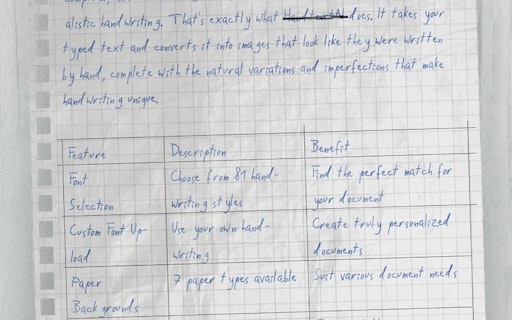 alistic handwriting. That's exactly what does. It takes your
typed text and converts it into images that look like they were written
by hand, complete with the natural variations and imperfections that make
handwriting unique.
Feature Description Benefit
Font Choose from 81 hand- Find the perfect match for
Selection writing styles your document
Custom Font Up- Use your own hand- Create truly personalized
load writing documents
Paper 7 paper types available Suit various document needs
Backgrounds